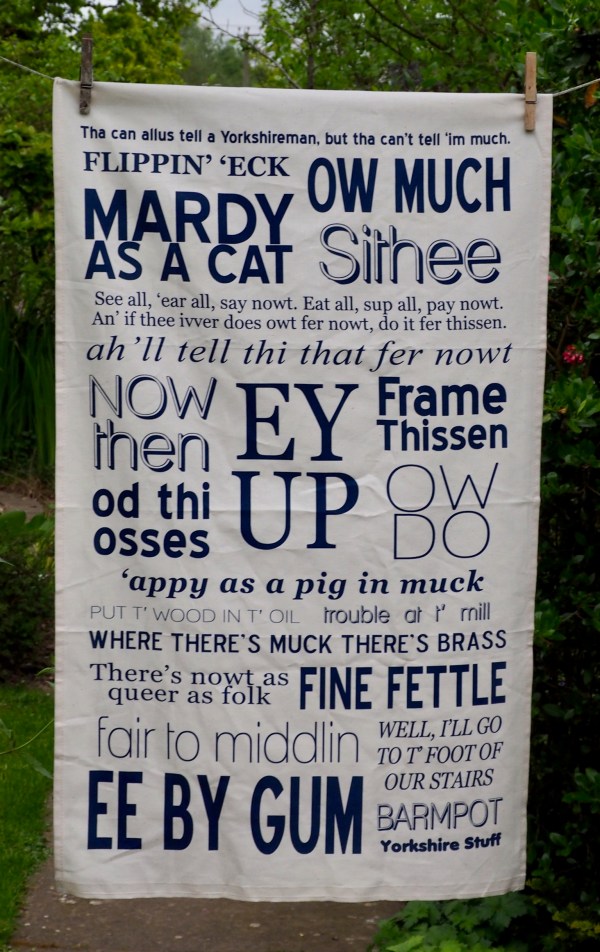 Tha can allus tell a Yorkshireman, but tha can't tell 'im much.
FLIPPIN' 'ECK
OW MUCH
MARDY
AS A CAT
Sithee
See all, 'ear all, say nowt. Eat all, sup all, pay nowt.
An' if thee ivver does owt fer nowt, do it fer thissen.
ah'll tell thi that fer nowt
NOW
then
EY
UP
Frame
Thissen
od thi
osses
OW
DO
'appy as a pig in muck
PUT T' WOOD IN T' OIL
trouble at t' mill
WHERE THERE'S MUCK THERE'S BRASS
There's nowt as
queer as folk
FINE FETTLE
fair to middlin
WELL, I'LL GO
TO T' FOOT OF
OUR STAIRS
EE BY GUM
BARMPOT
Yorkshire Stuff